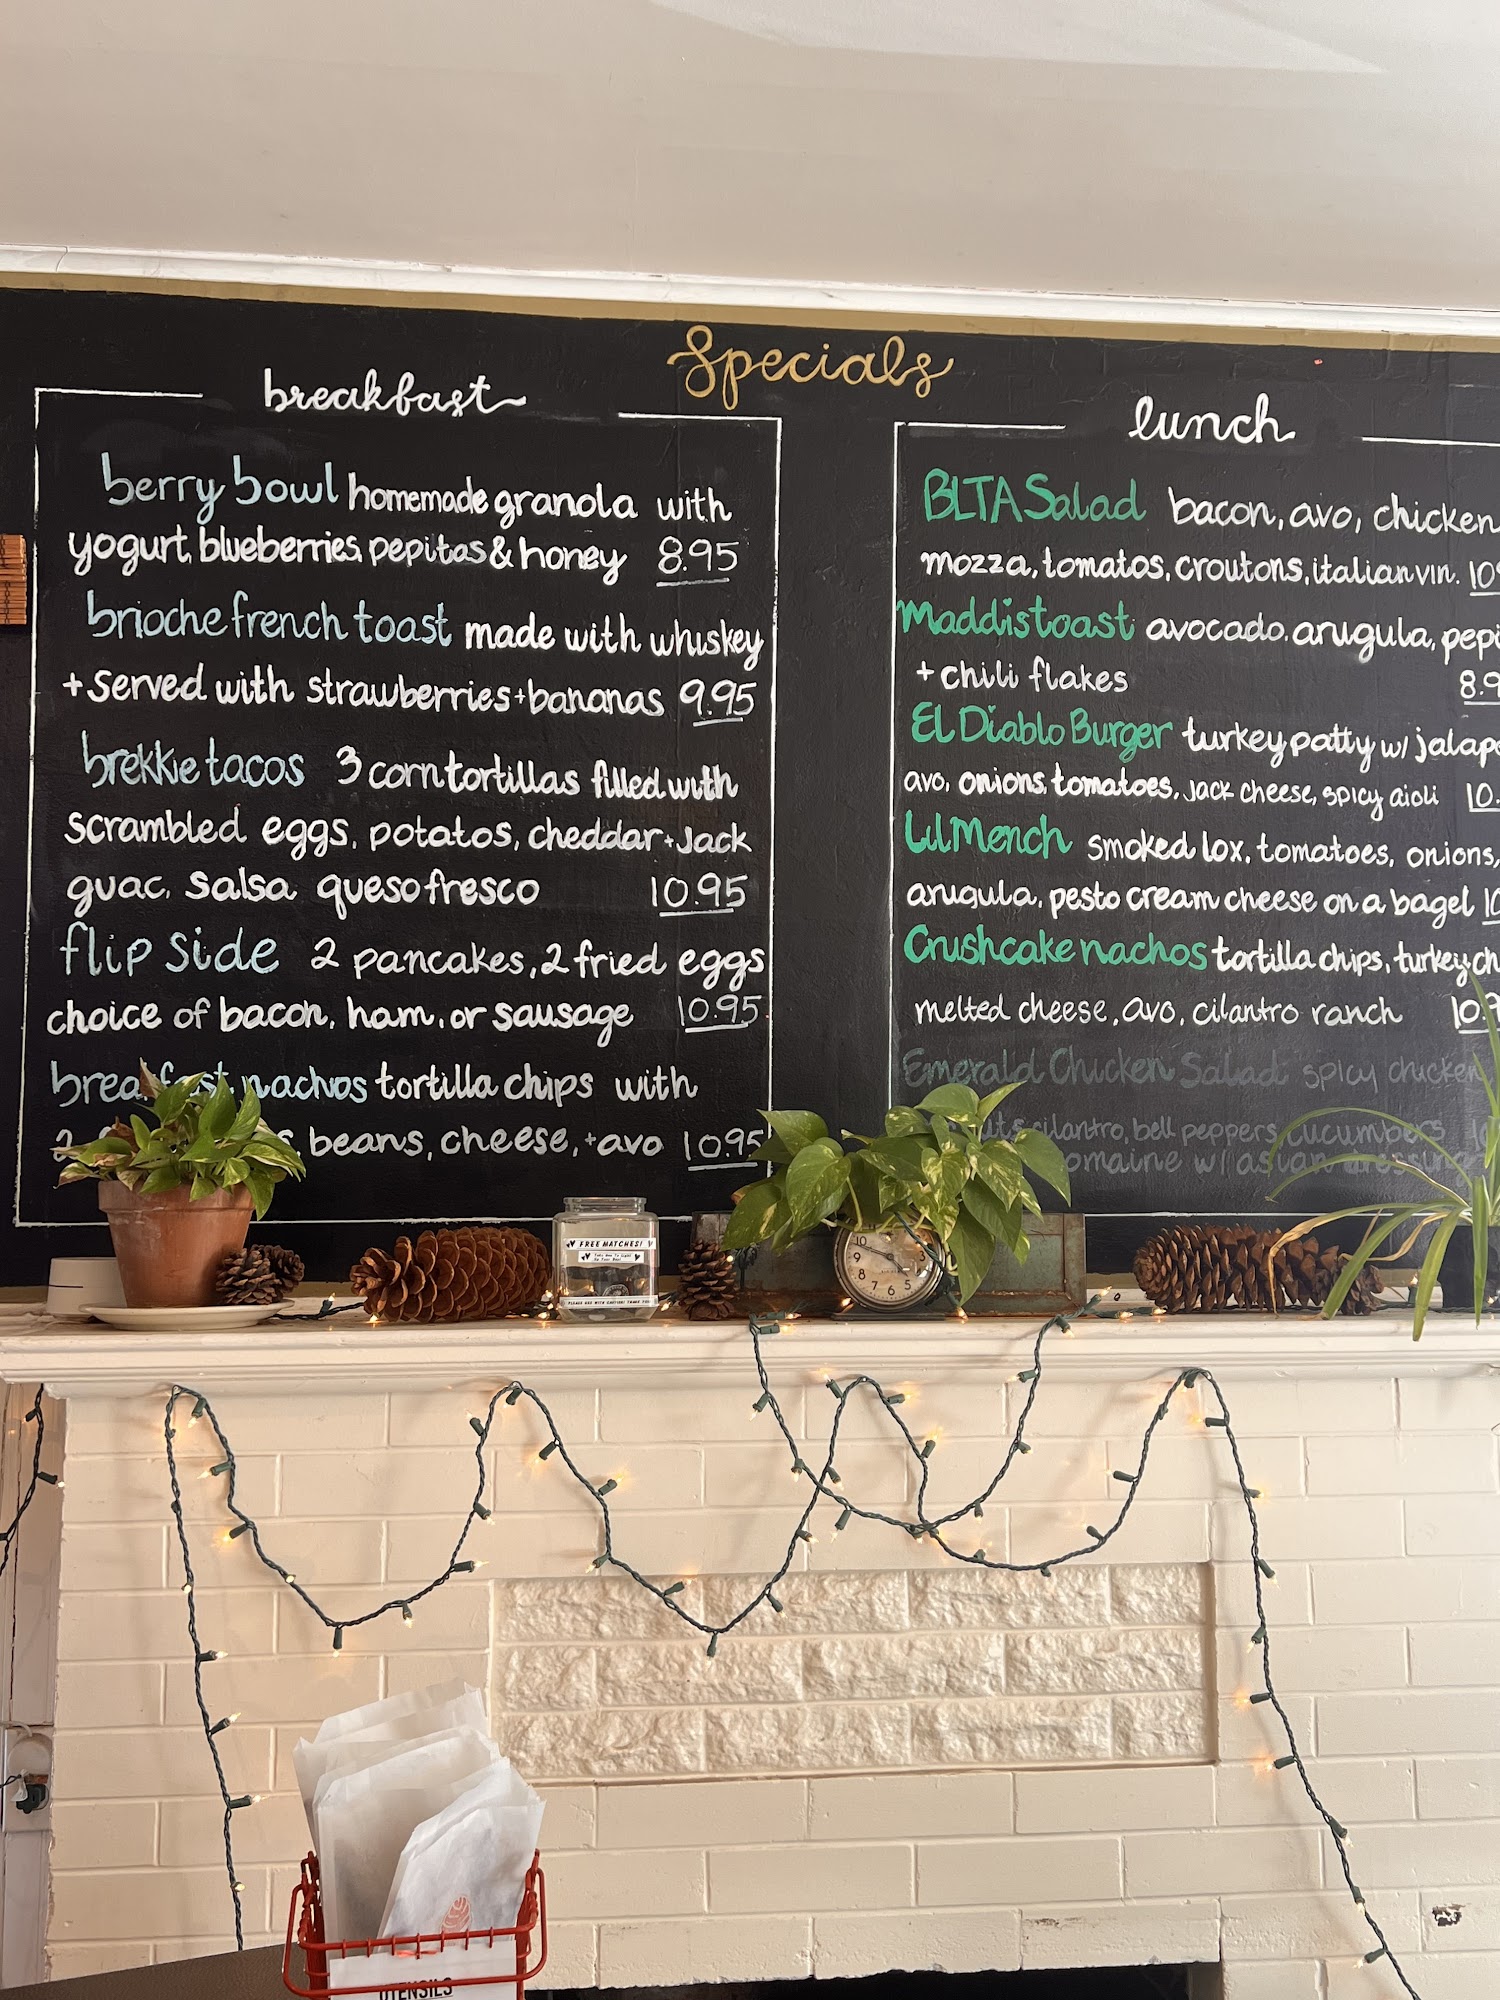 Specials
breakfast
berry bowl homemade granola with
yogurt, blueberries, pepitas & honey 8.95
brioche french toast made with whiskey
+ served with strawberries + bananas 9.95
brekkie tacos 3 corn tortillas filled with
scrambled eggs, potatos, cheddar + jack
guac, salsa queso fresco 10.95
flip side 2 pancakes, 2 fried eggs
choice of bacon, ham, or sausage 10.95
breakfast nachos tortilla chips with
beans, cheese, + avo 10.95
lunch
BLTA Salad bacon, avo, chicken
mozza, tomatos, croutons, italian vin.
Maddis toast avocado, arugula,
+ chili flakes
El Diablo Burger turkey patty w/
avo, onions, tomatoes, jack cheese, spicy aioli
Lil Mench smoked lox, tomatoes, onions,
arugula, pesto cream cheese on a bagel
Crushcake nachos tortilla chips, turkey
melted cheese, avo, cilantro ranch
Emerald Chicken Salad: spicy chicken
cilantro, bell peppers, cucumbers
w/ asian dressing
FREE MATCHES!
10
9
8
7
6
5
4
3
UTENSILS